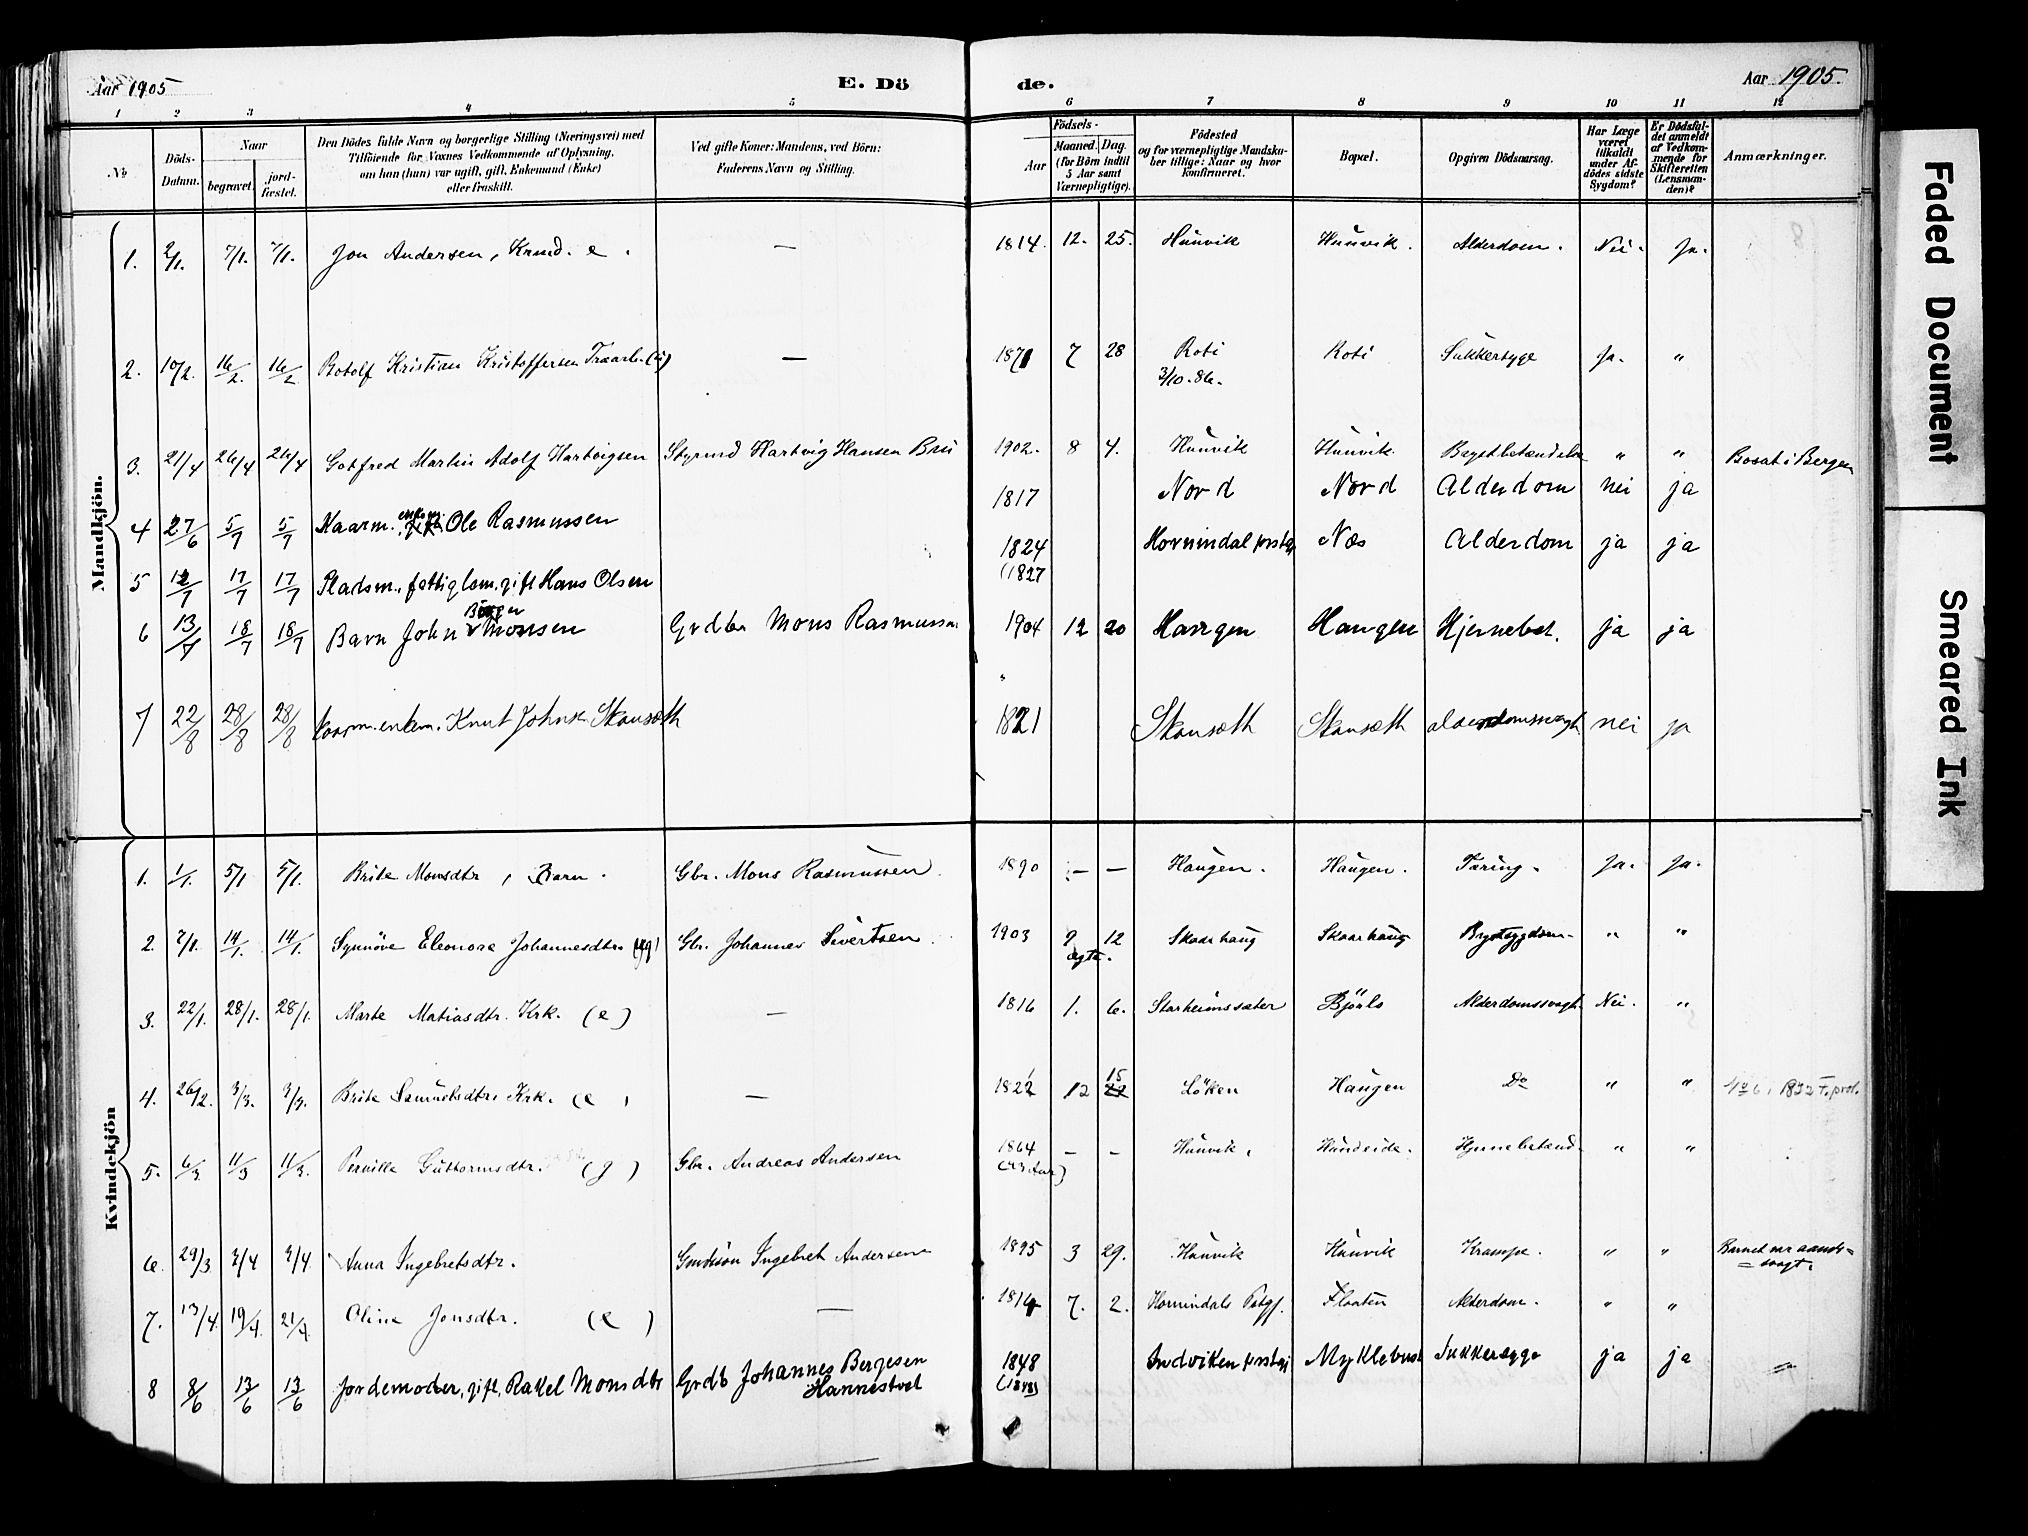 Aar 1905
E. Döde.
Aar 1905.
1 2 3 4 5 6 7 8 9 10 11 12
No
Döds-Datum.
Naar
begravet.
jord-fæstet.
Den Dödes fulde Navn og borgerlige Stilling (Næringsvei) med
Tilföiende for Voxnes Vedkommende af Oplysning,
om han (hun) var ugift, gift, Enkemand (Enke)
eller fraskilt.
Ved gifte Koner: Mandens, ved Börn:
Faderens Navn og Stilling.
Födsels-
Aar
Maaned. Dag.
(for Börn indtil
5 Aar samt
Værnepligtige).
Födested
og for værnepligtige Mandska-
ber tillige: Naar og hvor
konfirmeret.
Bopæl.
Opgiven Dödsaarsag.
Har Læge
været
tilkaldt
under Af-
dödes sidste
Sygdom?
Er Dödsfal-
det anmeldt
af Vedkom-
mende for
Skifteretten
(Lensman-
den)?
Anmærkninger.
Mandkjön.
1. 2/1. 7/1. 7/1. Jon Andersen, Kaard. e. — 1814. 12. 25. Hunvik Hunvik. Alderdom. Nei. Ja.
2. 10/2. 16/2. 16/2 Botolf Kristian Kristoffersen — 1871 7 28 Roti Roti Sukkersyge Ja. "
3/10. 86.
3. 21/4 26/4 26/4 Gotfred Martin Adolf Hartvigsen Styrmd Hartvig Hansen 1902. 8 4. Hunvik Hunvik. Brystbetændelse " " Bosat i Bergen
4 27/6 5/7 5/7 enkem. Ole Rasmussen 1817 Nord Nord Alderdom nei ja
5 12/7 17/7 17/7 Pladsm., fattiglem, gift Hans Olsen 1824 Hornindal prstgj Næs Alderdom ja ja
(1827
6 13/7 18/7 18/7 Barn John Monsen Grdbr Mons Rasmussen 1904 12 20 Haugen Haugen Hjernebet. ja ja
7 22/8 28/8 28/8 enkem. Knut Johns. Skausæth 1821 Skausæth Skausæth alderdomssvagh nei ja
Kvindekjön
1. 1/1. 5/1 5/1. Brite Monsdtr, Barn. Gbr. Mons Rasmussen. 1890 — — Haugen. Haugen. Tæring. Ja. Ja.
2. 7/1. 14/1. 14/1. Synnöve Eleonora Johannesdtr (ug) Gbr. Johannes Sivertsen. 1903 9 12 Skaarhaug Skaarhaug Brystsygdom. " "
ægte.
3. 22/1. 28/1. 28/1. Marte Matiasdtr. Krk. (e) — 1816 1. 6. Starheimssæter Björlo Alderdomssvagh. Nei. "
4. 26/2. 3/3. 3/3. Brite Samuelsdtr. Krk. (e) — 1822 12 15 Löken Haugen Do " " No 6, 1832 F. prot.
5. 6/3 11/3 11/3. Pernille Guttormsdtr. (g) Gbr. Andreas Andersen 1864 — — Hunvik. Hundeide. Hjernebetænd. " "
6. 29/3 3/4 3/4. Anna Ingebretsdtr. Ingebret Andersen 1895 3 29. Hunvik Hunvik Krampe. " " Barnet var aands=
=svagt.
7. 13/4. 19/4. 21/4 Oline Jonsdtr. (e) — 1814 7. 2. Hornindals Pstgj. Flaaten Alderdom. " "
8 8/6 13/6 13/6 Jordemoder, gift, Rakel Monsdtr Grdb Johannes Bergesen 1848 Indviken prstgj Myklebust Sukkersyge ja ja
Hannestvet (1848)
Faded Document
Smeared Ink